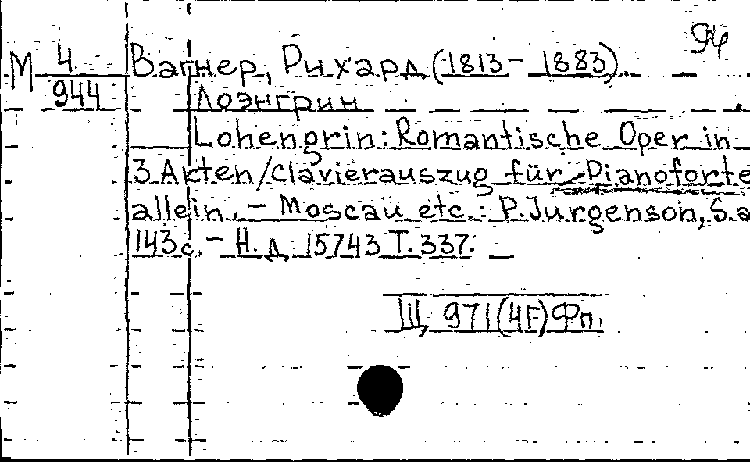 М 4/944
Вагнер, Рихард (1813 - 1883).
Лоэнгрин
Lohengrin: Romantische Oper in
3 Akten/Clavierauszug für Pianoforte
allein. - Moscau etc.: P. Jurgenson, S.a
143с. - Н.д. 15743 Т. 337.
Щ 971(4Г)Фп.